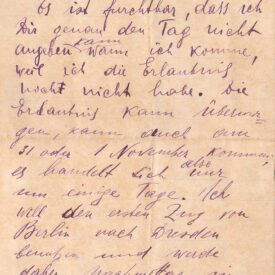 Es ist furchtbar, dass ich
Dir genau den Tag nicht
angeben kann wann ich komme,
weil ich die Erlaubnis
noch nicht habe. Die
Erlaubnis kann übermor-
gen, kann auch am
31 oder 1 November kommen,
es handelt sich aber nur
um einige Tage. Ich
will den ersten Zug von
Berlin nach Dresden
benutzen und werde
daher